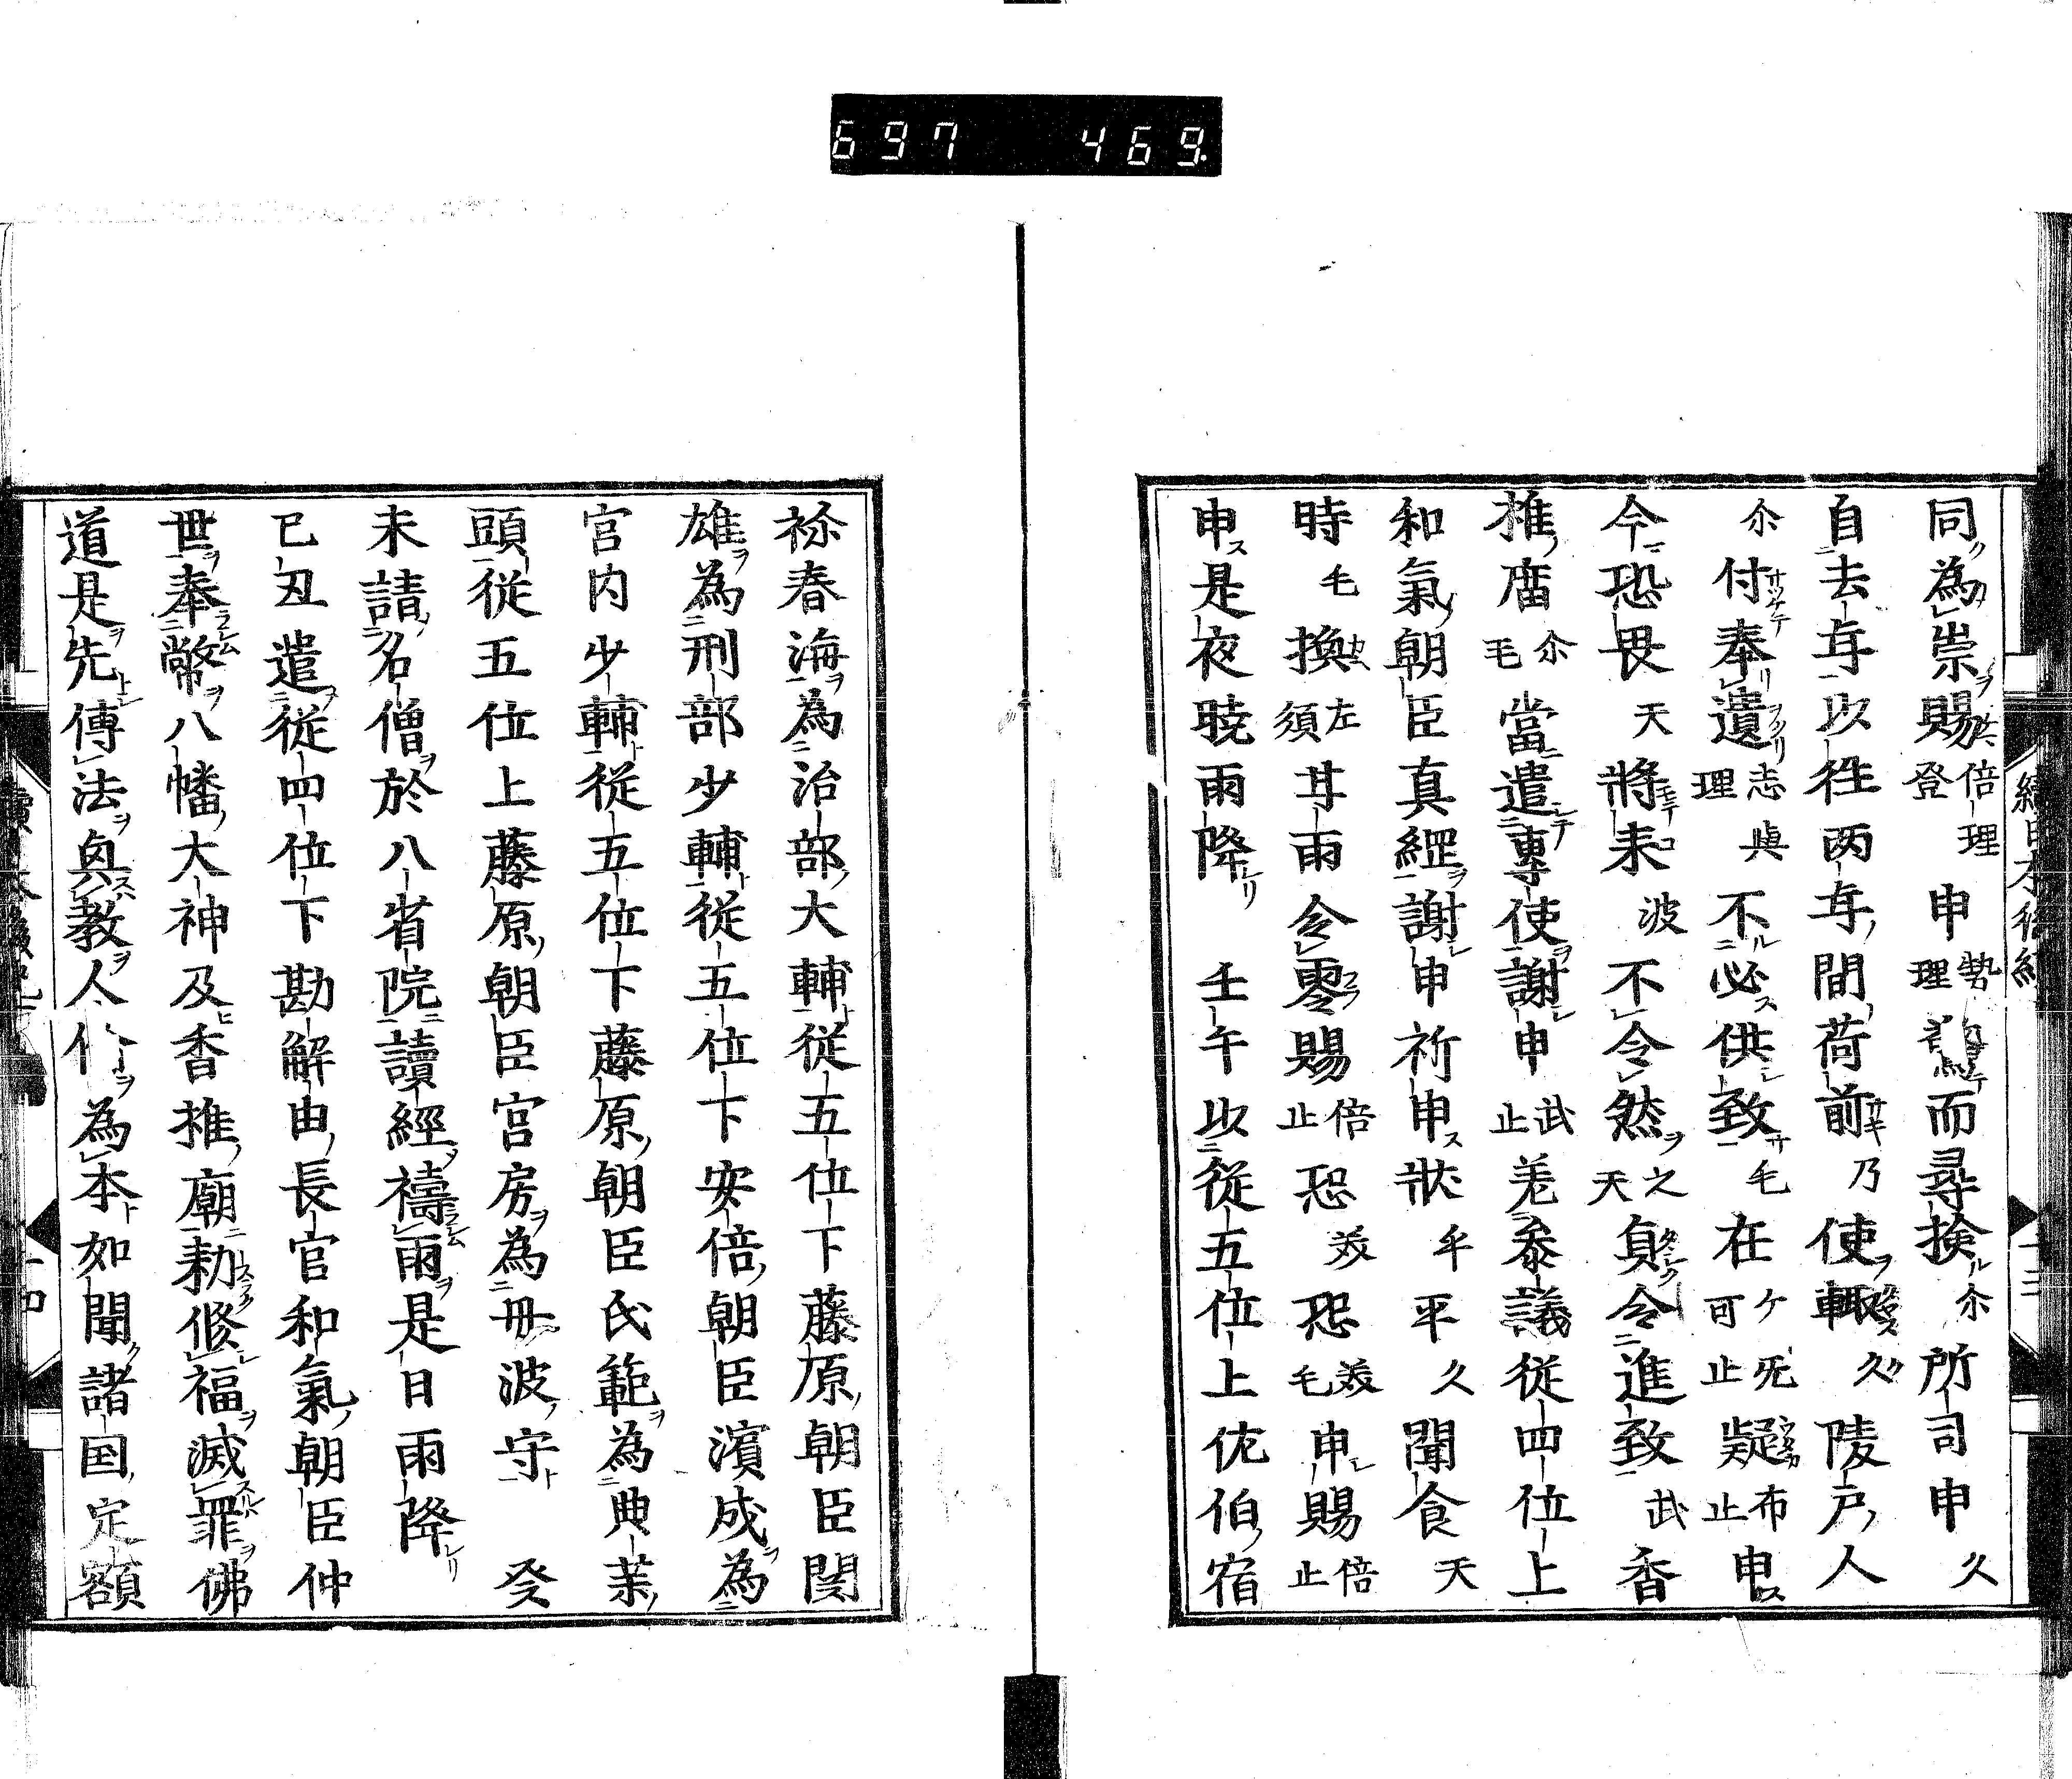 697 469.
同為崇賜倍理登申勢理而尋捡尓所司申久
自去年以徃两年間荷前乃使輙久陵戸人
尓付奉遺志理與不必供致毛在ケ旡可止疑布止申
今恐畏天將来波不令然之天負令進致武香
推廟尓毛當遣專使謝申武止差參議従四位上
和氣朝臣真綱謝申祈申状乎平久聞食天
時毛換左須甘雨令零賜倍止恐美恐美毛申賜倍止
申是夜暁雨降　壬午以従五位上佐伯宿
祢春海為治部大輔従五位下藤原朝臣関
雄為刑部少輔従五位下安倍朝臣濱成為
宮内少輔従五位下藤原朝臣氏範為典薬
頭従五位上藤原朝臣宮房為丹波守　癸
未請名僧於八省院讀經禱雨是日雨降
已丑遣従四位下勘解由長官和氣朝臣仲
世奉幣八幡大神及香推廟勅修福滅罪佛
道是先傳法與教人為本如聞諸国定額